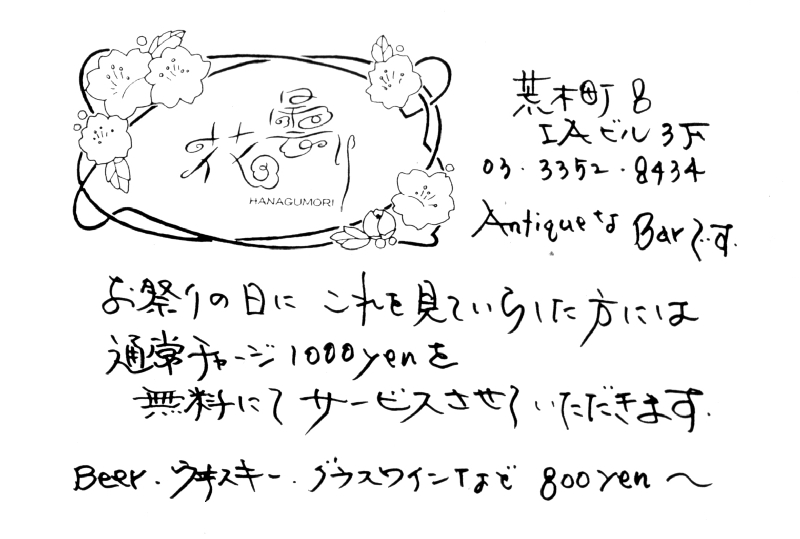 花曇り
HANAGUMORI
荒木町8
IAビル3F
03・3352・8434
Antiqueな Barです.
お祭りの日に これを見ていらした方には
通常チャージ1000yenを
無料にて サービスさせていただきます.
Beer・ウヰスキー・グラスワインなど 800yen〜